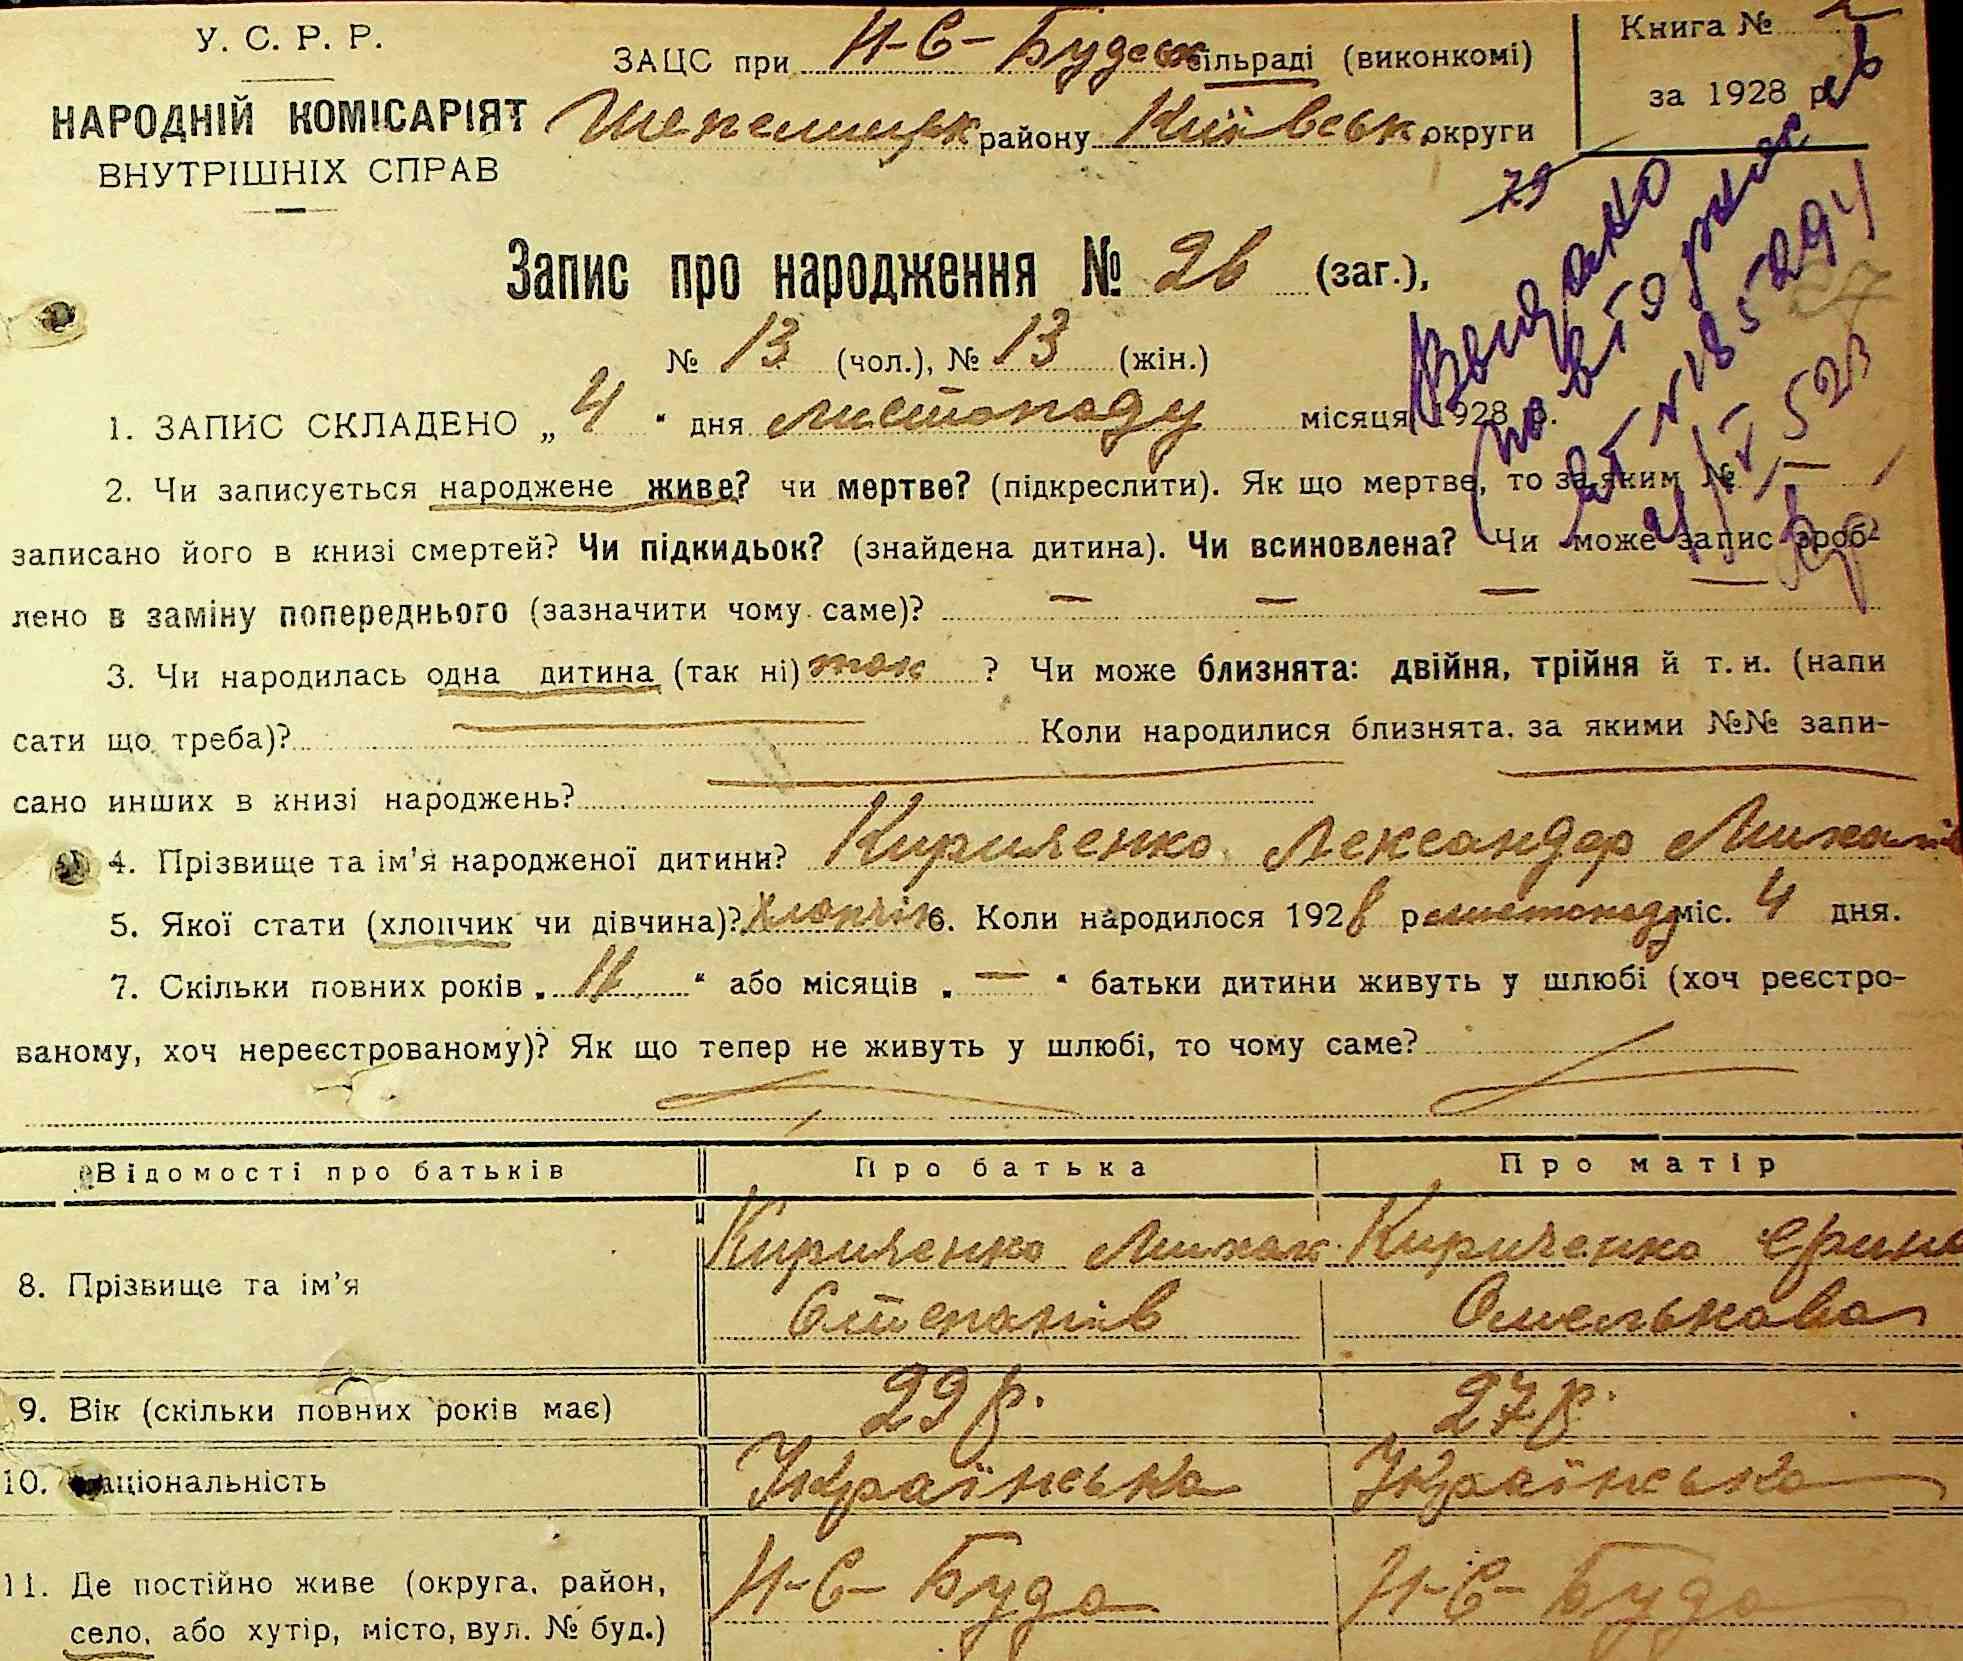 У. С. Р. Р.
НАРОДНІЙ КОМІСАРІЯТ
ВНУТРІШНІХ СПРАВ
ЗАЦС при Н-С-Будськ сільраді (виконкомі)
Шепелицьк району Київськ округи
Книга № 2
за 1928 р.
79
Видано
повторне
27
Запис про народження № 26 (заг.),
№ 13 (чол.), № 13 (жін.)
1. ЗАПИС СКЛАДЕНО „ 4 " дня листопаду місяця 1928 р.
2. Чи записується народжене живе? чи мертве? (підкреслити). Як що мертве, то за яким № —
записано його в книзі смертей? Чи підкидьок? (знайдена дитина). Чи всиновлена? Чи може запис зроб-
лено в заміну попереднього (зазначити чому саме)? — — —
3. Чи народилась одна дитина (так ні) так ? Чи може близнята: двійня, трійня й т. и. (напи
сати що треба)? Коли народилися близнята, за якими №№ запи-
сано инших в книзі народжень?
4. Прізвище та ім'я народженої дитини? Кириченко Лександор Михайлів
5. Якої стати (хлопчик чи дівчина)? Хлопчік 6. Коли народилося 1928 р. листопаду міс. 4 дня.
7. Скільки повних років „ 11 " або місяців „ — " батьки дитини живуть у шлюбі (хоч реєстро-
ваному, хоч нереєстрованому)? Як що тепер не живуть у шлюбі, то чому саме?
Відомості про батьків Про батька Про матір
8. Прізвище та ім'я Кириченко Михайл Степанів Кириченко Єрина Омелькова
9. Вік (скільки повних років має) 29 р. 27 р.
10. Національність Українська Українська
11. Де постійно живе (округа, район, Н-С-Буда Н-С-Буда
село, або хутір, місто, вул. № буд.)